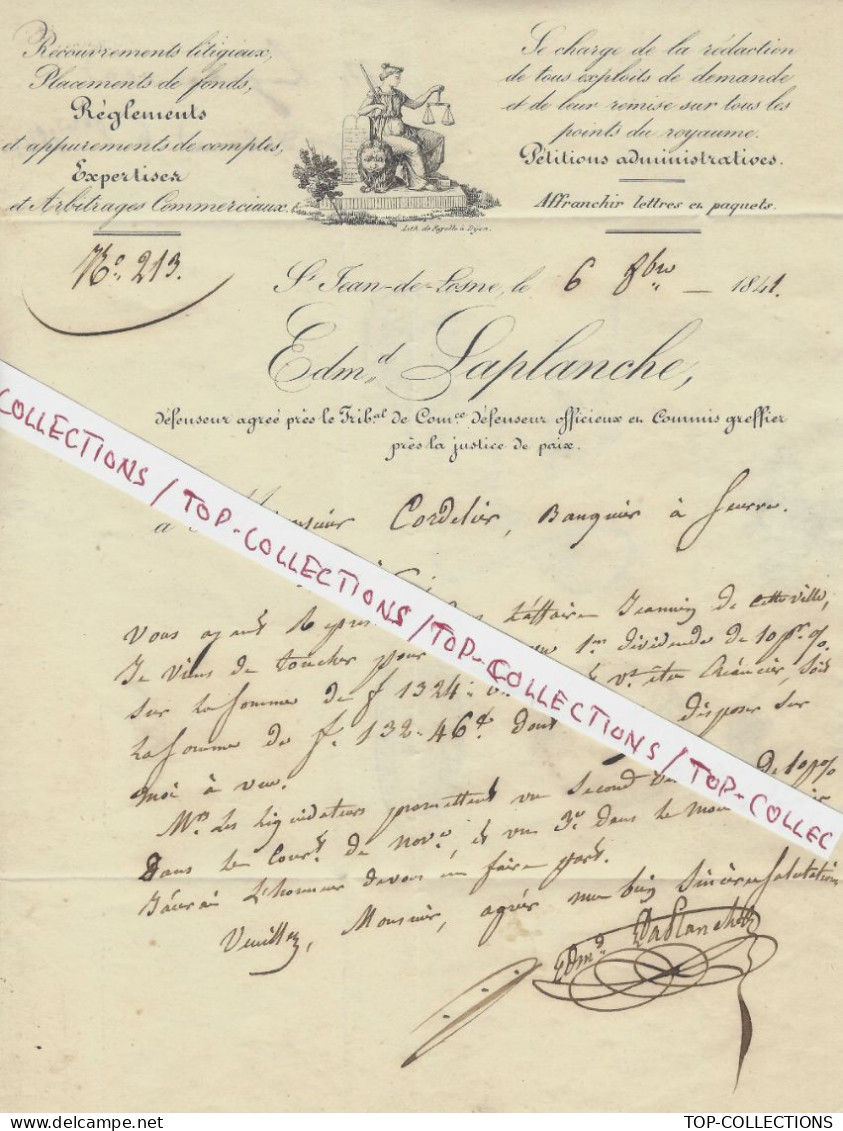 Recouvrements litigieux,
Placements de fonds,
Réglements
et appurements de comptes,
Expertises
et Arbitrages Commerciaux.
Se charge de la rédaction
de tous exploits de demande
et de leur remise sur tous les
points du royaume.
Pétitions administratives.
Affranchir lettres et paquets.
Lith. de à Dijon.
No. 213.
St Jean-de-Losne, le 6 8bre 1841.
Edmd Laplanche,
défenseur agreé près le Tribal de Comce défenseur officieux et Commis greffier
près la justice de paix.
a Monsieur Cordelier, Banquier à Seurre.
Vous ayant l'affaire Jeannin de cette ville,
Je viens de toucher pour 1er dividende de 10 pr %
sur la somme de f 1324 vs êtes Créancier, soit
la somme de f. 132-46c. dont disposer sur
moi à vue.
Mrs Les liquidateurs promettent un second de 10 p%
Dans le Cour de novre, et un 3e dans le mois
J'aurai l'honneur de vous en faire part.
Veuillez, Monsieur, agréer mes bien sincères salutations
Edmd Laplanche
COLLECTIONS / TOP-COLLECTIONS / TOP-COLLECTIONS / TOP-COLLEC
TOP-COLLECTIONS